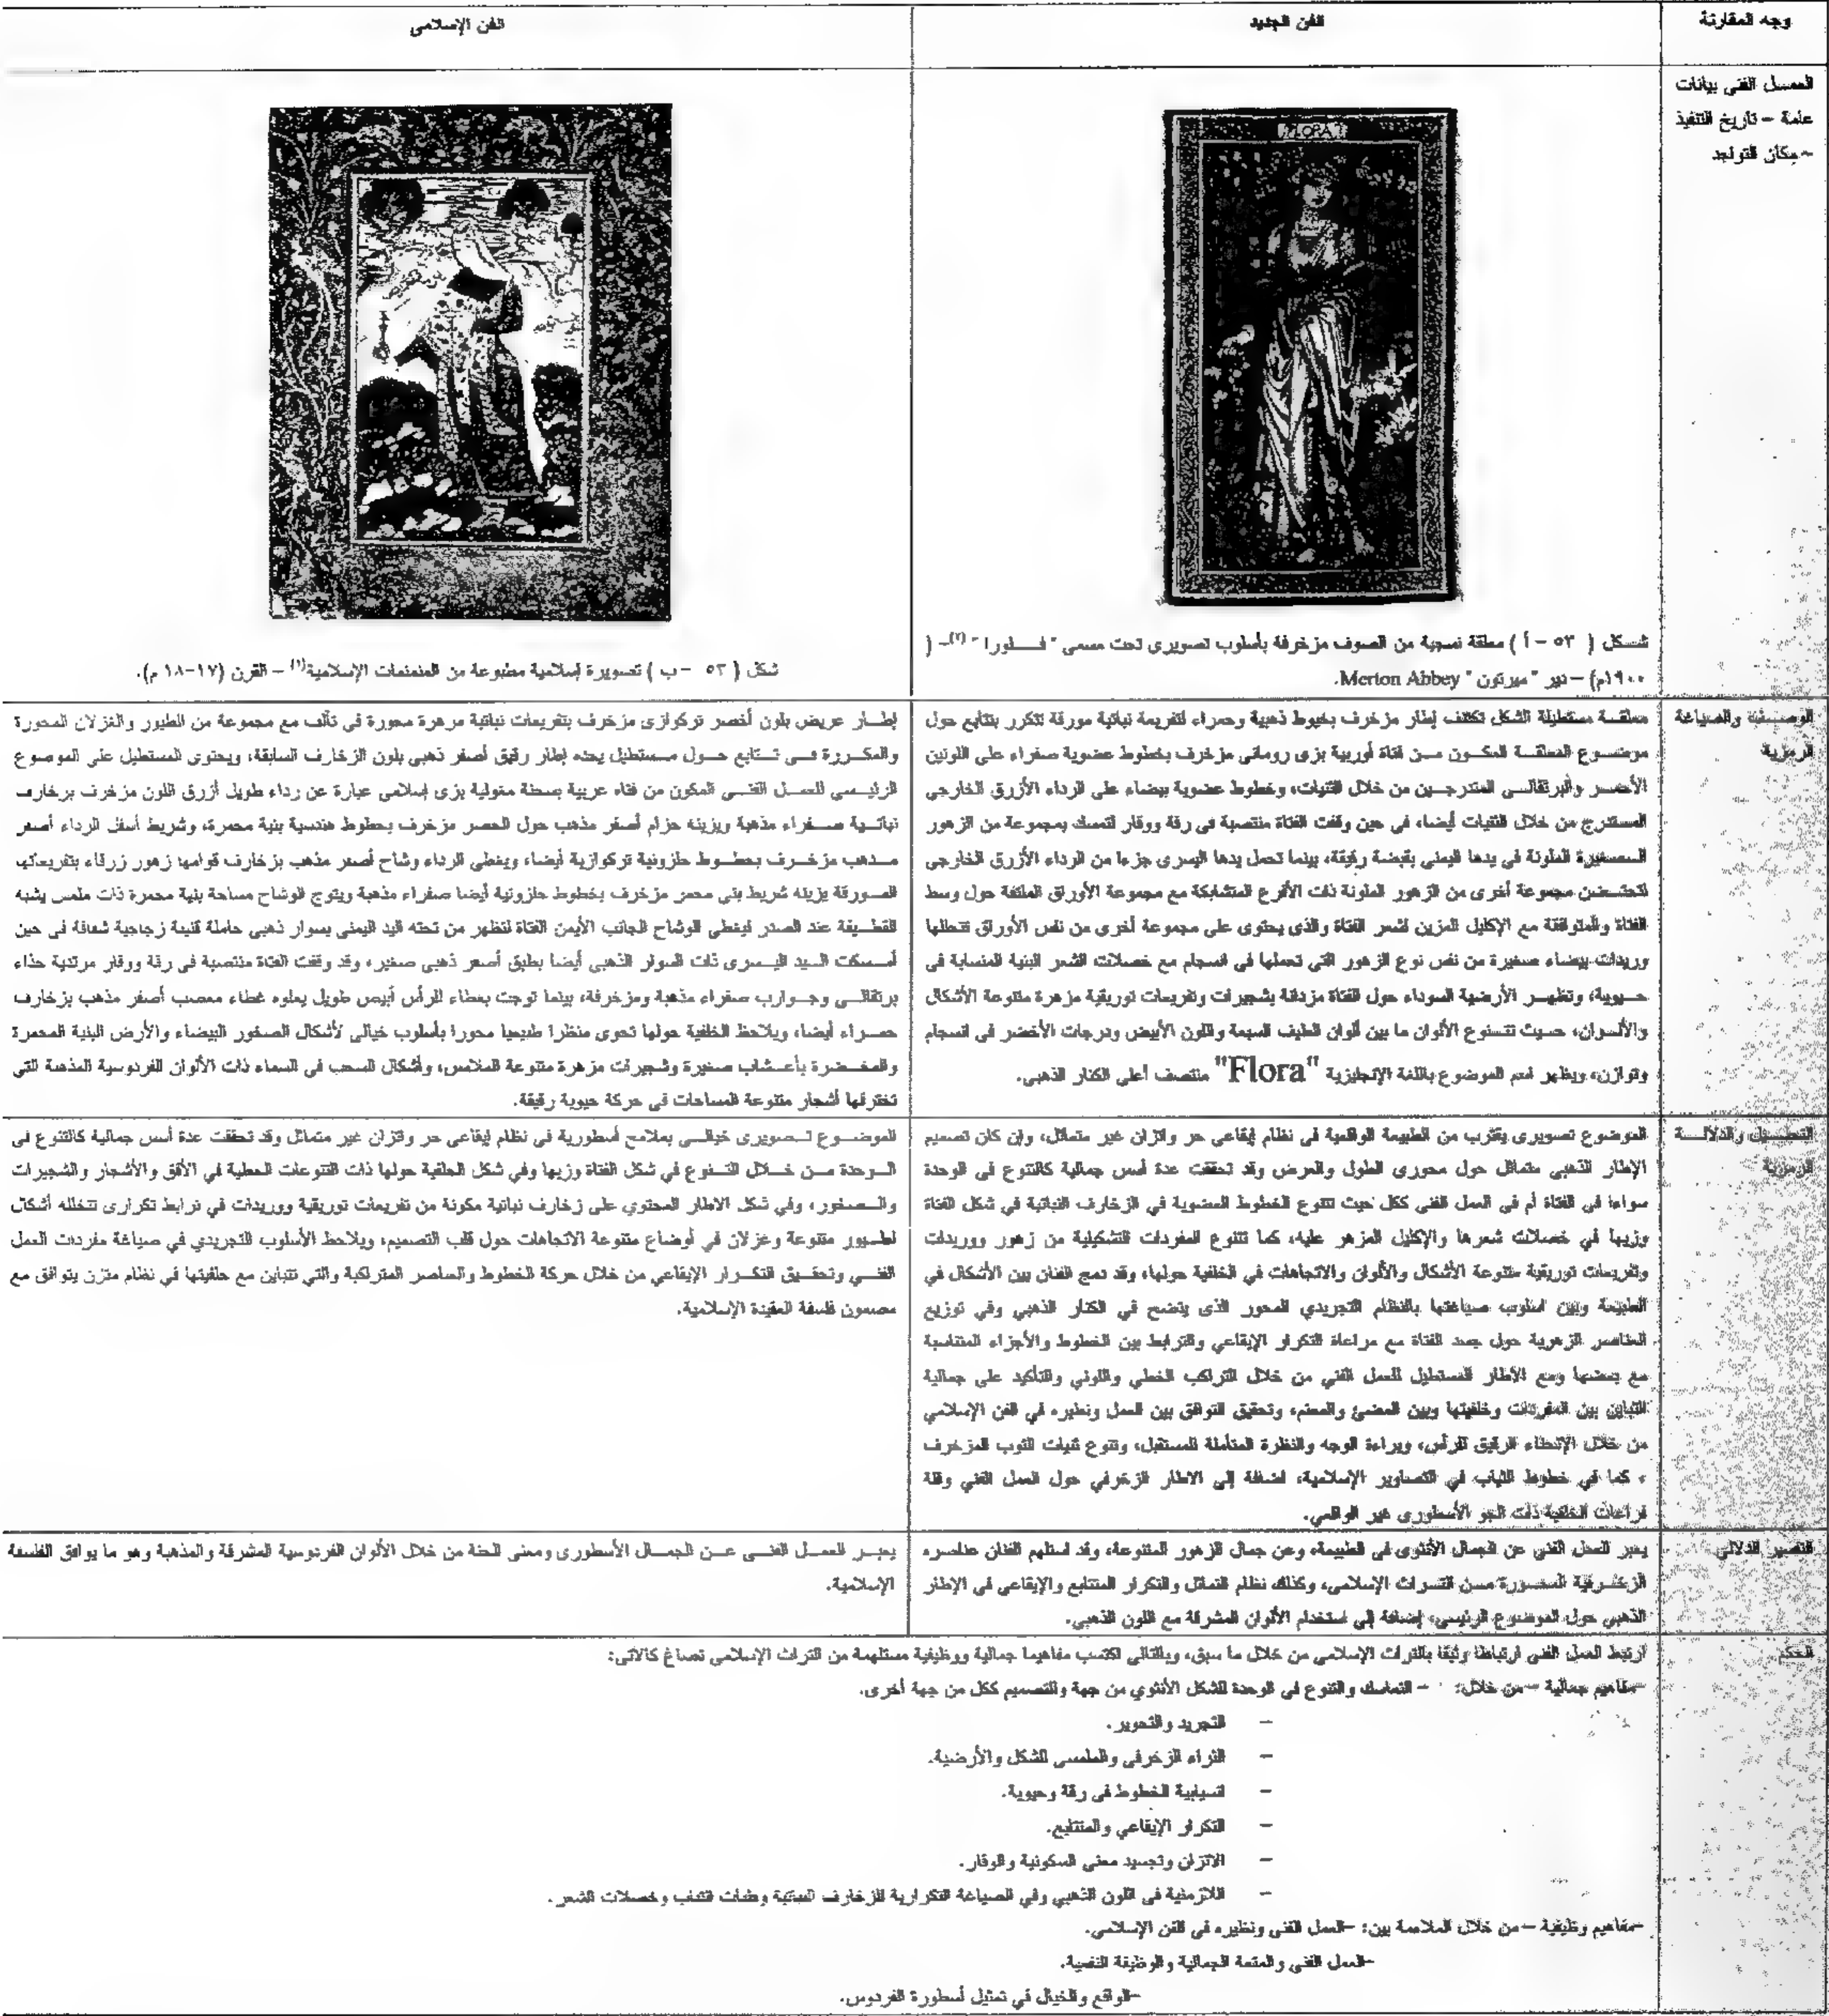 وجه المقارنة
الفن الجديد
الفن الإسلامى
العمل الفنى بيانات
عامة – تاريخ التنفيذ
–مكان التواجد
FLORA
شكل ( ٥٣ – أ ) معلقة نسجية من الصوف مزخرفة بأسلوب تصويرى تحت مسمى " فلورا " (٢)– (
١٩٠٠م) –دير " ميرتون " Merton Abbey.
شكل ( ٥٣ – ب ) تصويرة إسلامية مطبوعة من المنمنمات الإسلامية(١) – القرن (١٧–١٨ م).
الوصف والصياغة
الرمزية
معلقة مستطيلة الشكل تكتنف إطار مزخرف بخيوط ذهبية وحمراء لتفريعة نباتية مورقة تتكرر بتتابع حول
موضوع المعلقة المكون من فتاة أوربية بزى رومانى مزخرف بخطوط عضوية صفراء على اللونين
الأحمر والبرتقالى المتدرجين من خلال الثنيات، وخطوط عضوية بيضاء على الرداء الأزرق الخارجي
المتدرج من خلال الثنيات أيضا، فى حين وقفت الفتاة منتصبة فى رقة ووقار لتمسك بمجموعة من الزهور
الصغيرة الملونة فى يدها اليمنى بقبضة رقيقة، بينما تحمل يدها اليسرى جزءا من الرداء الأزرق الخارجي
لتحتضن مجموعة أخرى من الزهور الملونة ذات الأفرع المتشابكة مع مجموعة الأوراق الملتفة حول وسط
الفتاة والمتوافقة مع الإكليل المزين لشعر الفتاة والذى يحتوى على مجموعة أخرى من نفس الأوراق تتخللها
وريدات بيضاء صغيرة من نفس نوع الزهور التي تحملها فى انسجام مع خصلات الشعر البنية المنسابة فى
حيوية، وتظهر الأرضية السوداء حول الفتاة مزدانة بشجيرات وتفريعات توريقية مزهرة متنوعة الأشكال
والألوان، حيث تتنوع الألوان ما بين ألوان الطيف السبعة واللون الأبيض ودرجات الأخضر فى انسجام
وتوازن، ويظهر اسم الموضوع باللغة الإنجليزية "Flora" منتصف أعلى الكنار الذهبى.
إطار عريض بلون أخضر تركوازى مزخرف بتفريعات نباتية مزهرة محورة في تآلف مع مجموعة من الطيور والغزلان المحورة
والمكررة فى تتابع حول مستطيل يحده إطار رقيق أصفر ذهبى بلون الزخارف السابقة، ويحتوى المستطيل على الموضوع
الرئيسى للعمل الفنى المكون من فتاه عربية بسحنة مغولية بزى إسلامى عبارة عن رداء طويل أزرق اللون مزخرف بزخارف
نباتية صفراء مذهبة ويزينه حزام أصفر مذهب حول الخصر مزخرف بخطوط هندسية بنية محمرة، وشريط أسفل الرداء أصفر
مذهب مزخرف بخطوط حلزونية تركوازية أيضا، ويغطى الرداء وشاح أصفر مذهب بزخارف قوامها زهور زرقاء بتفريعاتها
المورقة يزينه شريط بني محمر مزخرف بخطوط حلزونية أيضا صفراء مذهبة ويتوج الوشاح مساحة بنية محمرة ذات ملمس يشبه
القطيفة عند الصدر فيغطى الوشاح الجانب الأيمن الفتاة لتظهر من تحته اليد اليمنى بسوار ذهبي حاملة قنينة زجاجية شفافة فى حين
أمسكت اليد اليسرى ذات السوار الذهبي أيضا بطبق أصفر ذهبي صغير، وقد وقفت الفتاة منتصبة فى رقة ووقار مرتدية حذاء
برتقالى وجوارب صفراء مذهبة ومزخرفة، بينما توجت بغطاء للرأس أبيض طويل يعلوه غطاء معصب أصفر مذهب بزخارف
حمراء أيضا، ويلاحظ الخلفية حولها تحوى منظرا طبيعيا محورا بأسلوب خيالى لأشكال الصخور البيضاء والأرض البنية المحمرة
والمخضرة بأعشاب صغيرة وشجيرات مزهرة متنوعة الملامس، وأشكال السحب فى السماء ذات الألوان الفردوسية المذهبة التي
تخترقها أشجار متنوعة المساحات فى حركة حيوية رقيقة.
التحليل والدلالة
الرمزية
الموضوع تصويرى يقترب من الطبيعة الواقعية فى نظام إيقاعى حر واتزان غير متماثل، وإن كان تصميم
الإطار الذهبي متماثل حول محورى الطول والعرض وقد تحققت عدة أسس جمالية كالتنوع فى الوحدة
سواءا فى الفتاة أم فى العمل الفنى ككل حيث تتنوع الخطوط العضوية في الزخارف النباتية في شكل الفتاة
وزيها في خصلات شعرها والإكليل المزهر عليه، كما تتنوع المفردات التشكيلية من زهور ووريدات
وتفريعات توريقية متنوعة الأشكال والألوان والاتجاهات في الخلفية حولها، وقد دمج الفنان بين الأشكال في
الطبيعة وبين اسلوب صياغتها بالنظام التجريدي المحور الذى يتضح في الكنار الذهبي وفي توزيع
العناصر الزهرية حول جسد الفتاة مع مراعاة التكرار الإيقاعي والترابط بين الخطوط والأجزاء المتناسبة
مع بعضها ومع الأطار المستطيل للعمل الفني من خلال التراكب الخطي واللوني والتأكيد على جمالية
التباين بين المفردات وخلفيتها وبين المضئ والمعتم، وتحقيق التوافق بين العمل ونظيره في الفن الإسلامي
من خلال الإنحناء الرقيق للرأس، وبراءة الوجه والنظرة المتأملة للمستقبل، وتنوع ثنيات الثوب المزخرف
، كما في خطوط الثياب في التصاوير الإسلامية، اضافة إلى الاطار الزخرفي حول العمل الفني وقلة
فراغات الخلفية ذات الجو الأسطورى غير الواقعي.
الموضوع تصويرى خيالى بملامح أسطورية في نظام إيقاعى حر واتزان غير متماثل وقد تحققت عدة أسس جمالية كالتنوع فى
الوحدة من خلال التنوع في شكل الفتاة وزيها وفي شكل الخلفية حولها ذات التنوعات الخطية في الأفق والأشجار والشجيرات
والصخور، وفي شكل الاطار المحتوي على زخارف نباتية مكونة من تفريعات توريقية ووريدات في ترابط تكرارى تتخلله أشكال
لطيور متنوعة وغزلان في أوضاع متنوعة الاتجاهات حول قلب التصميم، ويلاحظ الأسلوب التجريدي في صياغة مفردات العمل
الفني وتحقيق التكرار الإيقاعي من خلال حركة الخطوط والعناصر المتراكبة والتي تتباين مع خلفيتها في نظام متزن يتوافق مع
مضمون فلسفة العقيدة الإسلامية.
التفسير الدلالى
يعبر العمل الفني عن الجمال الأنثوى فى الطبيعة، وعن جمال الزهور المتنوعة، وقد استلهم الفنان عناصره
الزخرفية المحورة من التراث الإسلامى، وكذلك نظام التماثل والتكرار المتتابع والإيقاعي في الإطار
الذهبي حول الموضوع الرئيسي، إضافة إلي استخدام الألوان المشرقة مع اللون الذهبي.
يعبر العمل الفنى عن الجمال الأسطورى ومعنى الجنة من خلال الألوان الفردوسية المشرقة والمذهبة وهو ما يوافق الفلسفة
الإسلامية.
الحكم
ارتبط العمل الفنى ارتباطا وثيقا بالتراث الإسلامى من خلال ما سبق، وبالتالى اكتسب مفاهيما جمالية ووظيفية مستلهمة من التراث الإسلامى تصاغ كالآتى:
–مفاهيم جمالية –من خلال: – التماسك والتنوع فى الوحدة للشكل الأنثوي من جهة وللتصميم ككل من جهة أخرى.
– التجريد والتحوير.
– الثراء الزخرفى والملمسى للشكل والأرضية.
– انسيابية الخطوط فى رقة وحيوية.
– التكرار الإيقاعي والمتتابع.
– الاتزان وتجسيد معنى السكونية والوقار.
– اللازمنية فى اللون الذهبي وفي الصياغة التكرارية للزخارف النباتية وطيات الثياب وخصلات الشعر.
–مفاهيم وظيفية –من خلال الملاءمة بين: –العمل الفنى ونظيره فى الفن الإسلامى.
–العمل الفنى والمتعة الجمالية والوظيفة النفعية.
–الواقع والخيال في تمثيل أسطورة الفردوس.